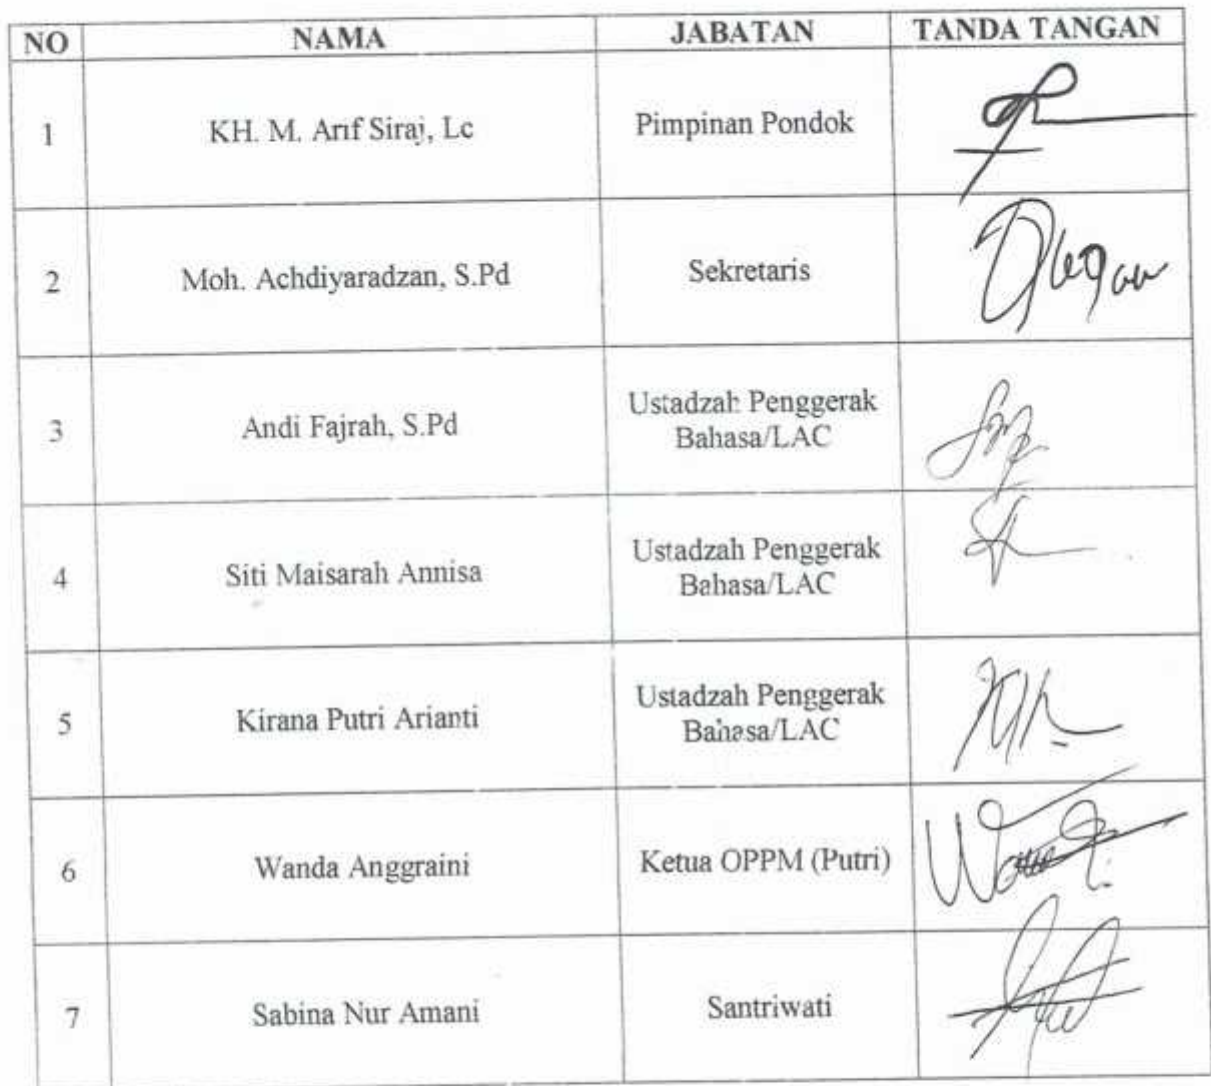 NO NAMA JABATAN TANDA TANGAN
1 KH. M. Arif Siraj, Lc Pimpinan Pondok
2 Moh. Achdiyaradzan, S.Pd Sekretaris
3 Andi Fajrah, S.Pd Ustadzah Penggerak
Bahasa/LAC
4 Siti Maisarah Annisa Ustadzah Penggerak
Bahasa/LAC
5 Kirana Putri Arianti Ustadzah Penggerak
Bahasa/LAC
6 Wanda Anggraini Ketua OPPM (Putri)
7 Sabina Nur Amani Santriwati